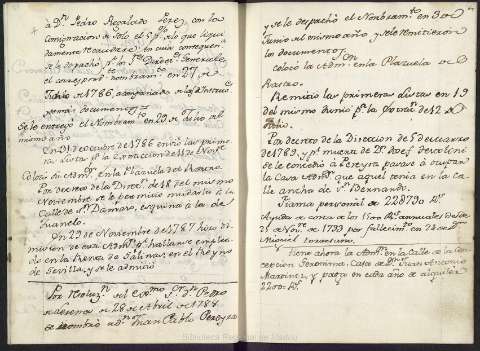 à Dn. Pedro Regalado Perez, con la
Consignacion de solo el 5 p%, de lo que liqui-
damente recaudare: en cuia consequen-
cia se despachó pr. los Sres. Direct. Generales
el correspondte. nombramto. en 27 de
Julio de 1786, acompañado de la Instruc-
Se le entregó el Nombramto. en 29 de dho. al
mismo año.
En 31 de Octubre de 1786 envió las prime-
ras listas pa. la extraccion de 11 de Novre.
Colocó su Admon. en la Plazuela del Rastro
Por decreto de la Direcn. de 18 del mismo
Noviembre se le permitió mudarla à la
Calle de Sn. Damaso, esquina à la de
Juanelo.
En 29 de Noviembre de 1787 hizo di-
mision de esta Admon. pr. hallarse emplea-
do en la Renta de Salinas en el Reyno
de Sevilla, y se le admitió.
Por Resoluzn. del Exmo. Sr. Dn. Pedro
de Lerena de 28 de Abril de 1788
se nombró à Dn. Juan Pablo Pereyra
y se le despachó el Nombramto. en 3 de
Junio del mismo año y se le remitieron
los documentos.
Colocó la Admon. en la Plazuela de
Rastro.
Remitió las primeras listas en 19
del mismo Junio pa. la Extracn. de 12 de
Julio.
Por decreto de la Direccion de 5 de Marzo
de 1789, y pr. muerte de Dn. Josef
se le concedió à Pereyra pasase à ocupar
la Casa Admon. que aquel tenia en la ca-
lle ancha de Sn. Bernardo.
Fianza personal de 22D790 Rs.
Ayuda de costa de los 1100 Rs. annuales desde
21 de Novre. de 1799 por fallecimto. en 20 de dho. de
Miguel
Tiene ahora la Admon. en la Calle de la Con-
cepcion Geronima, Casa de Dn. Juan Antonio
Martinez, y paga en cada año de alquiler
2200 Rs.
Biblioteca Regional de Madrid